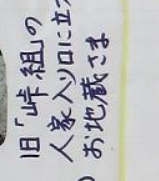 旧「峠組」の
人家入り口に立
お地蔵さま